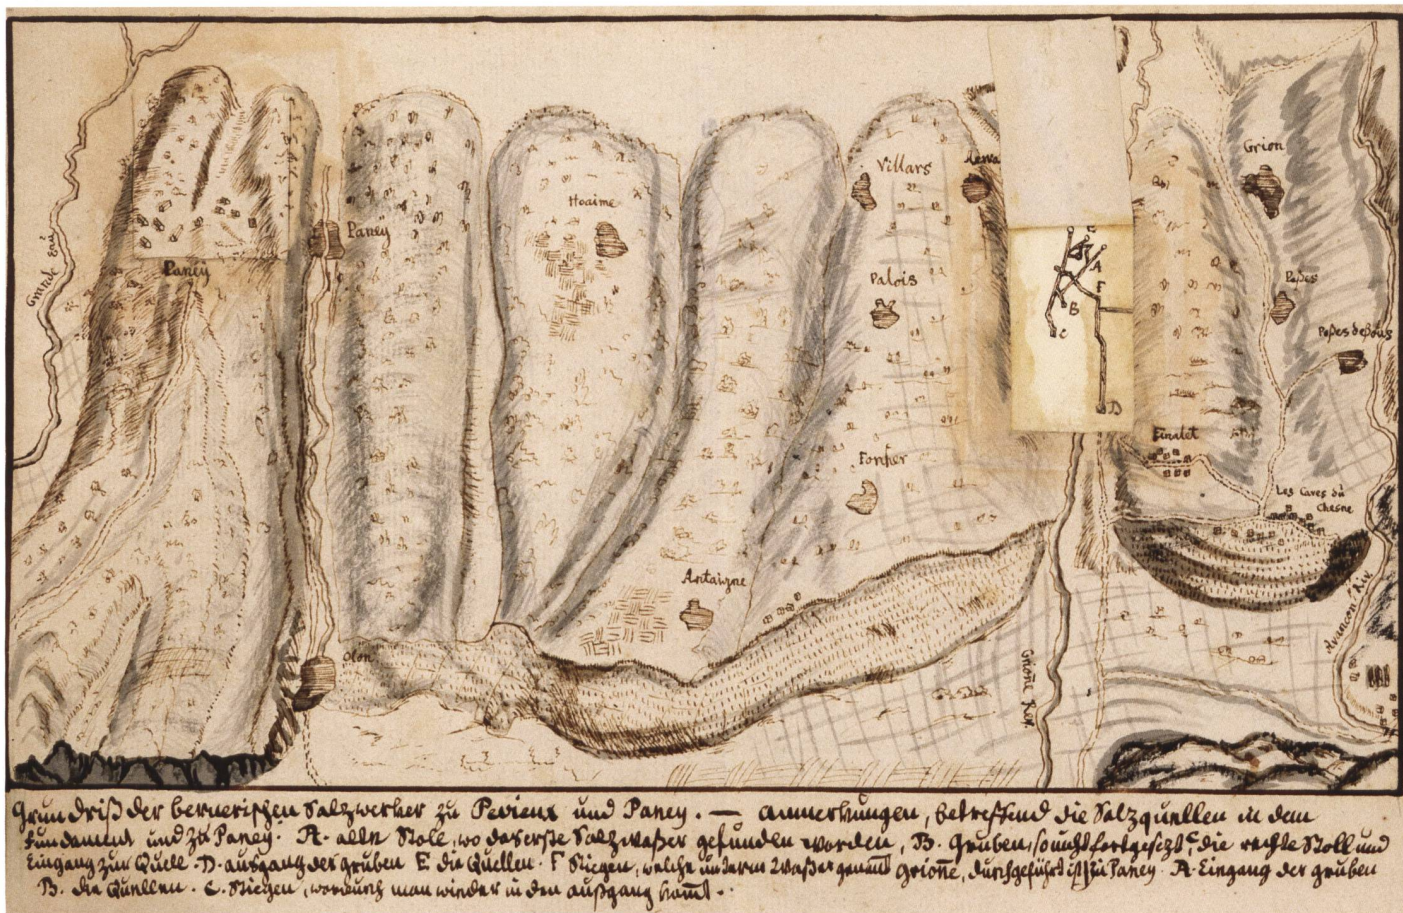 Grande Eau
Paneÿ
Paneÿ
Hoaime
Villars
Palois
Fonser
Antaigne
Olon
A
F
B
C
D
Grion
Paßes
Paßes deßous
Finalet
Les Caves du
Chesne
Grione Rev
Avancon Riv
Grundriß der bernerischen Saltzwerker zu Pevieux und Paney. — Anmerkungen, betreffend die Salzquellen in dem
Fundament und zu Paney. A. alte Stole, wo das erste Salzwaßer gefunden worden, B. Gruben, so nicht fortgesezt C die rechte Stoll und
Eingang zur Quelle. D. ausgang der gruben E. die Quellen. F Stiegen, welche unterm Waßer genannt Grione, durchgeführt ist zu Paney. A. Eingang der gruben
B. die Quellen. C. Stiegen, wordurch man wieder in den außgang komt.